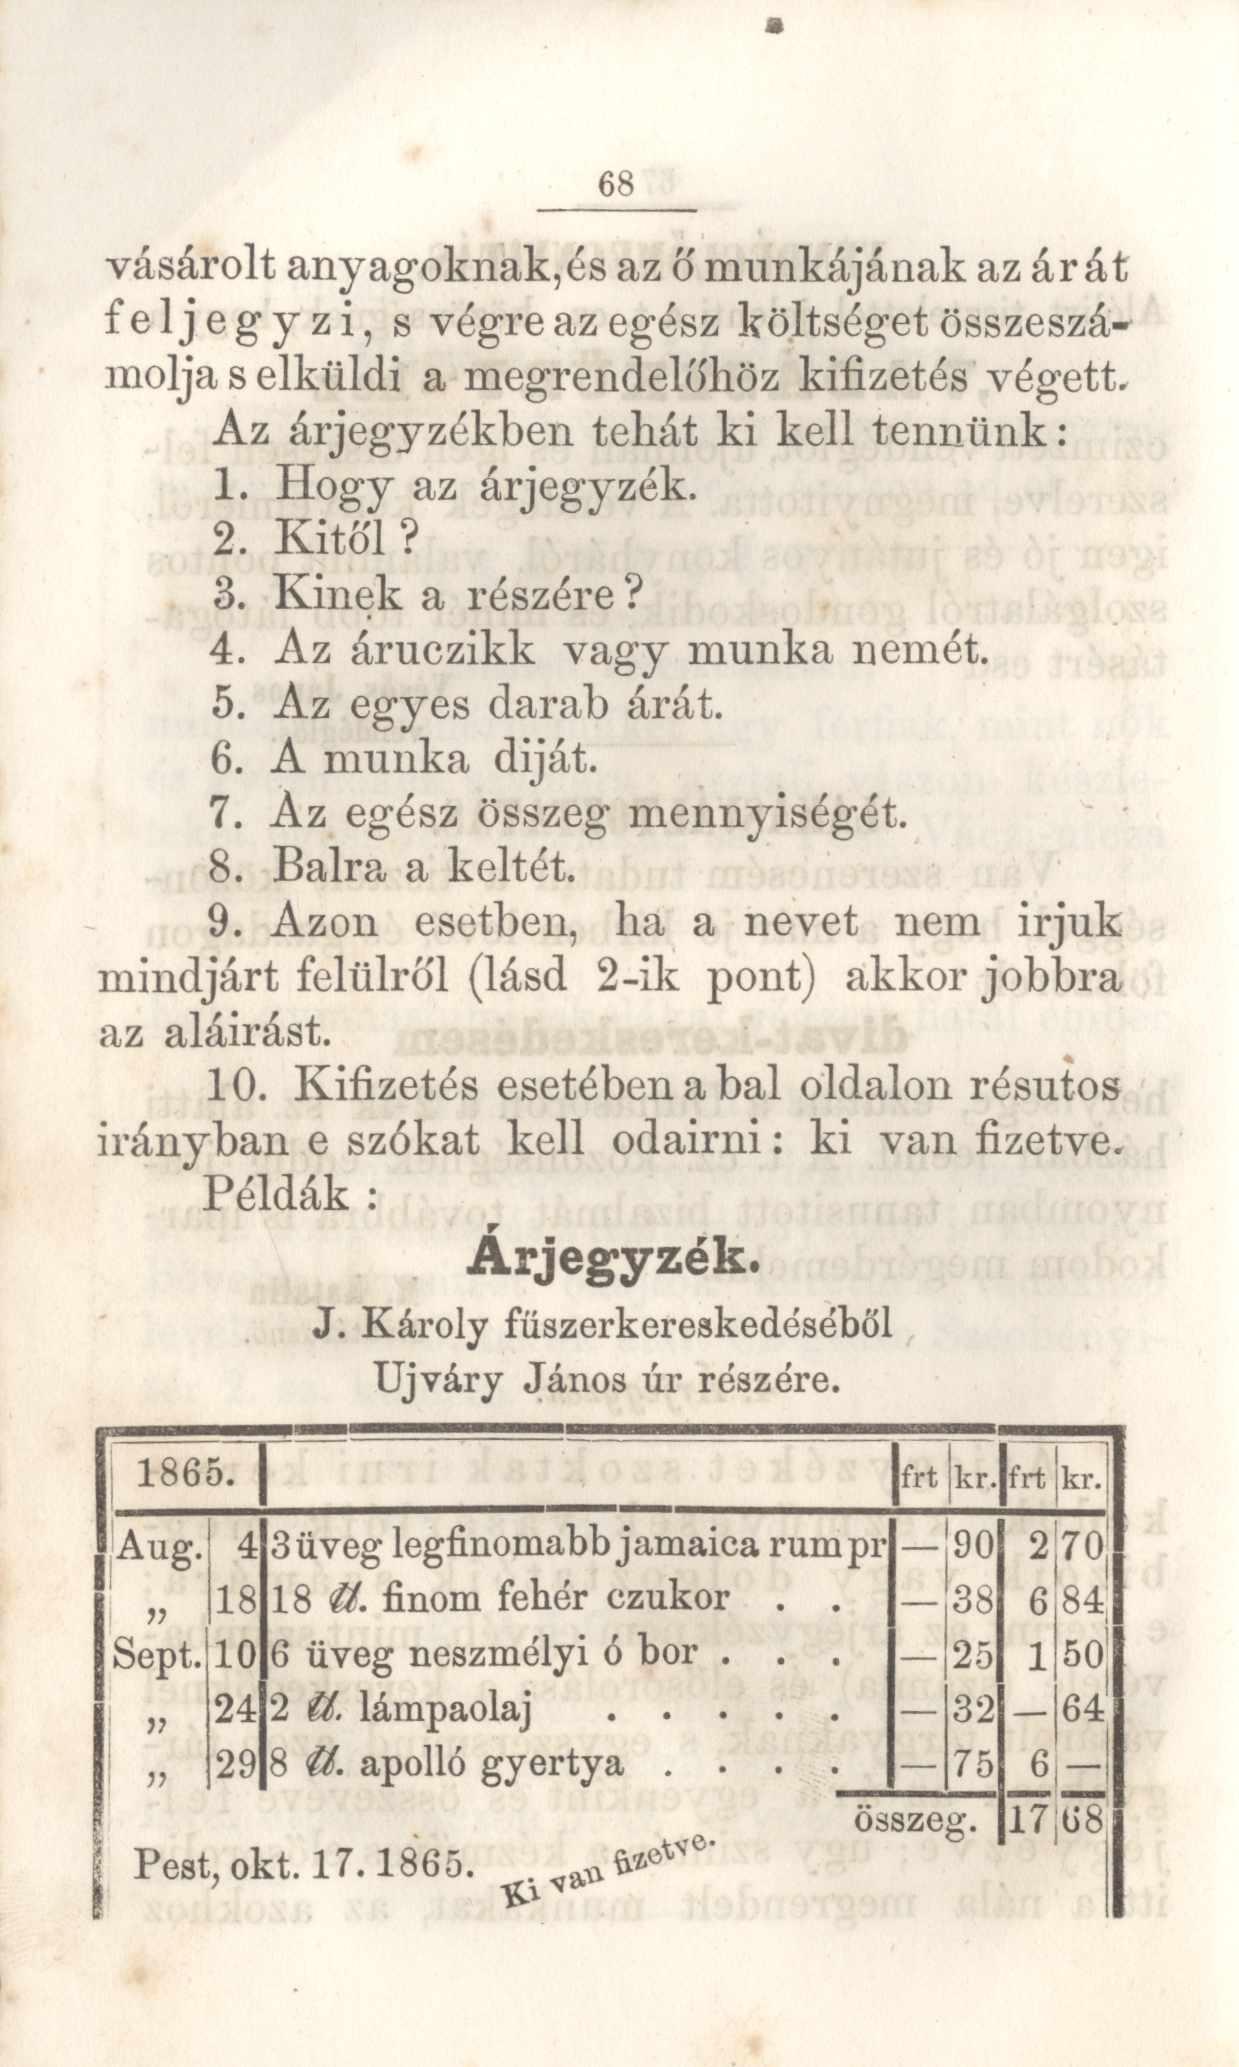 68
vásárolt anyagoknak, és az ő munkájának az árát
feljegyzi, s végre az egész költséget összeszá-
molja s elküldi a megrendelőhöz kifizetés végett.
Az árjegyzékben tehát ki kell tennünk:
1. Hogy az árjegyzék.
2. Kitől?
3. Kinek a részére?
4. Az áruczikk vagy munka nemét.
5. Az egyes darab árát.
6. A munka diját.
7. Az egész összeg mennyiségét.
8. Balra a keltét.
9. Azon esetben, ha a nevet nem irjuk
mindjárt felülről (lásd 2-ik pont) akkor jobbra
az aláirást.
10. Kifizetés esetében a bal oldalon résutos
irányban e szókat kell odairni: ki van fizetve.
Példák:
Árjegyzék.
J. Károly fűszerkereskedéséből
Ujváry János úr részére.
1865. frt kr. frt kr.
Aug. 4 3 üveg legfinomabb jamaica rum pr — 90 2 70
„ 18 18 ℔. finom fehér czukor . . — 38 6 84
Sept. 10 6 üveg neszmélyi ó bor . . . — 25 1 50
„ 24 2 ℔. lámpaolaj . . . . . — 32 — 64
„ 29 8 ℔. apolló gyertya . . . . — 75 6 —
összeg. 17 68
Pest, okt. 17. 1865. Ki van fizetve.